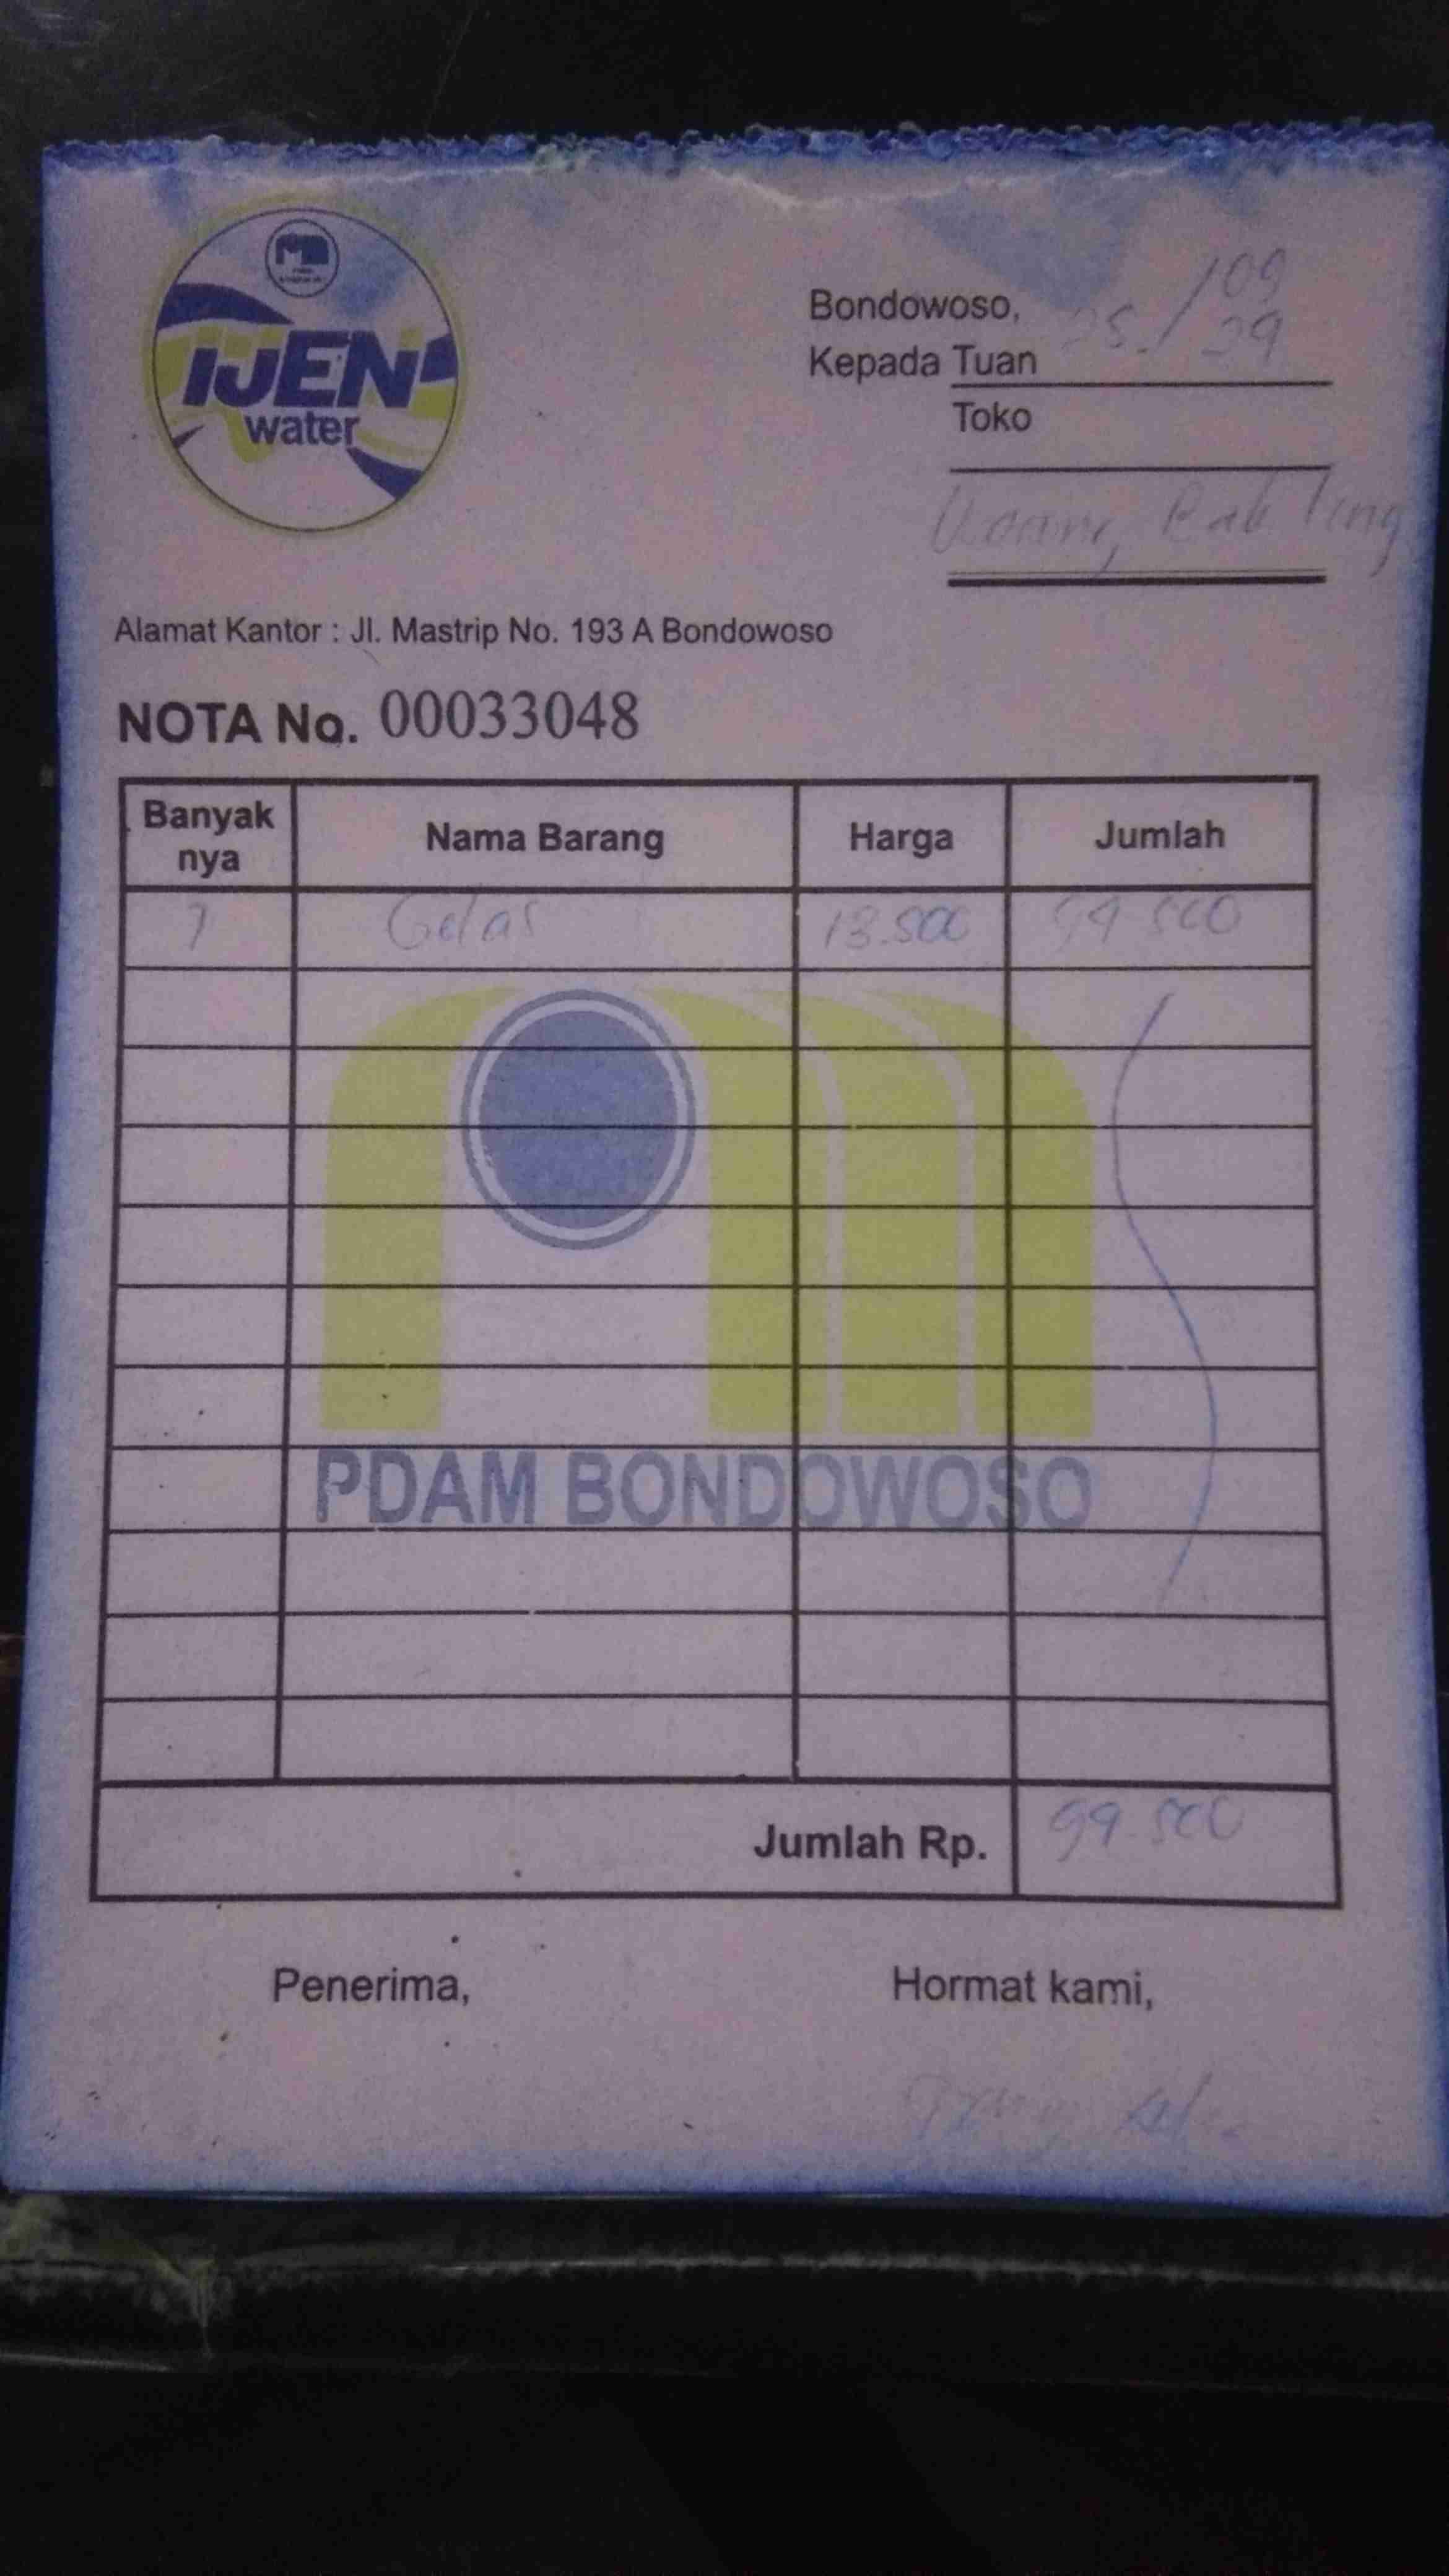 IJEN
water
Bondowoso, 25 / 09
Kepada Tuan
Toko
Alamat Kantor : Jl. Mastrip No. 193 A Bondowoso
NOTA No. 00033048
Banyak nya Nama Barang Harga Jumlah
7 Gelas 13.500 94 500
PDAM BONDOWOSO
Jumlah Rp. 94.500
Penerima, Hormat kami,